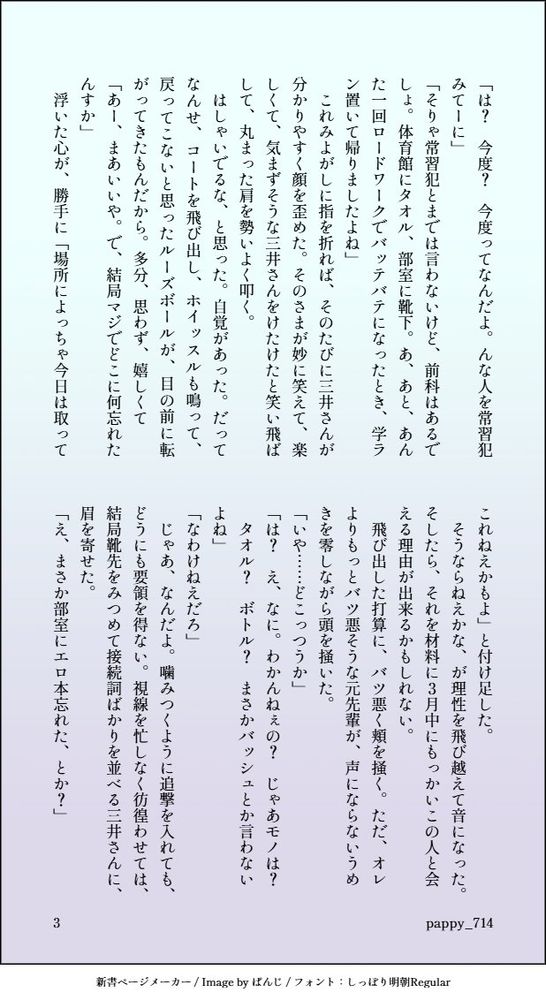 「は？　今度？　今度ってなんだよ。んな人を常習犯
みてーに」
「そりゃ常習犯とまでは言わないけど、前科はあるで
しょ。体育館にタオル、部室に靴下。あ、あと、あん
た一回ロードワークでバッテバテになったとき、学ラ
ン置いて帰りましたよね」
　これみよがしに指を折れば、そのたびに三井さんが
分かりやすく顔を歪めた。そのさまが妙に笑えて、楽
しくて、気まずそうな三井さんをけたけたと笑い飛ば
して、丸まった肩を勢いよく叩く。
　はしゃいでるな、と思った。自覚があった。だって
なんせ、コートを飛び出し、ホイッスルも鳴って、
戻ってこないと思ったルーズボールが、目の前に転
がってきたもんだから。多分、思わず、嬉しくて
「あー、まあいいや。で、結局マジでどこに何忘れた
んすか」
　浮いた心が、勝手に「場所によっちゃ今日は取って
これねえかもよ」と付け足した。
　そうならねえかな、が理性を飛び越えて音になった。
そしたら、それを材料に３月中にもっかいこの人と会
える理由が出来るかもしれない。
　飛び出した打算に、バツ悪く頬を掻く。ただ、オレ
よりもっとバツ悪そうな元先輩が、声にならないうめ
きを零しながら頭を掻いた。
「いや……どこっつうか」
「は？　え、なに。わかんねぇの？　じゃあモノは？
　タオル？　ボトル？　まさかバッシュとか言わない
よね」
「なわけねえだろ」
　じゃあ、なんだよ。噛みつくように追撃を入れても、
どうにも要領を得ない。視線を忙しなく彷徨わせては、
結局靴先をみつめて接続詞ばかりを並べる三井さんに、
眉を寄せた。
「え、まさか部室にエロ本忘れた、とか？」
3
pappy_714
新書ページメーカー / Image by ぱんじ / フォント：しっぽり明朝Regular